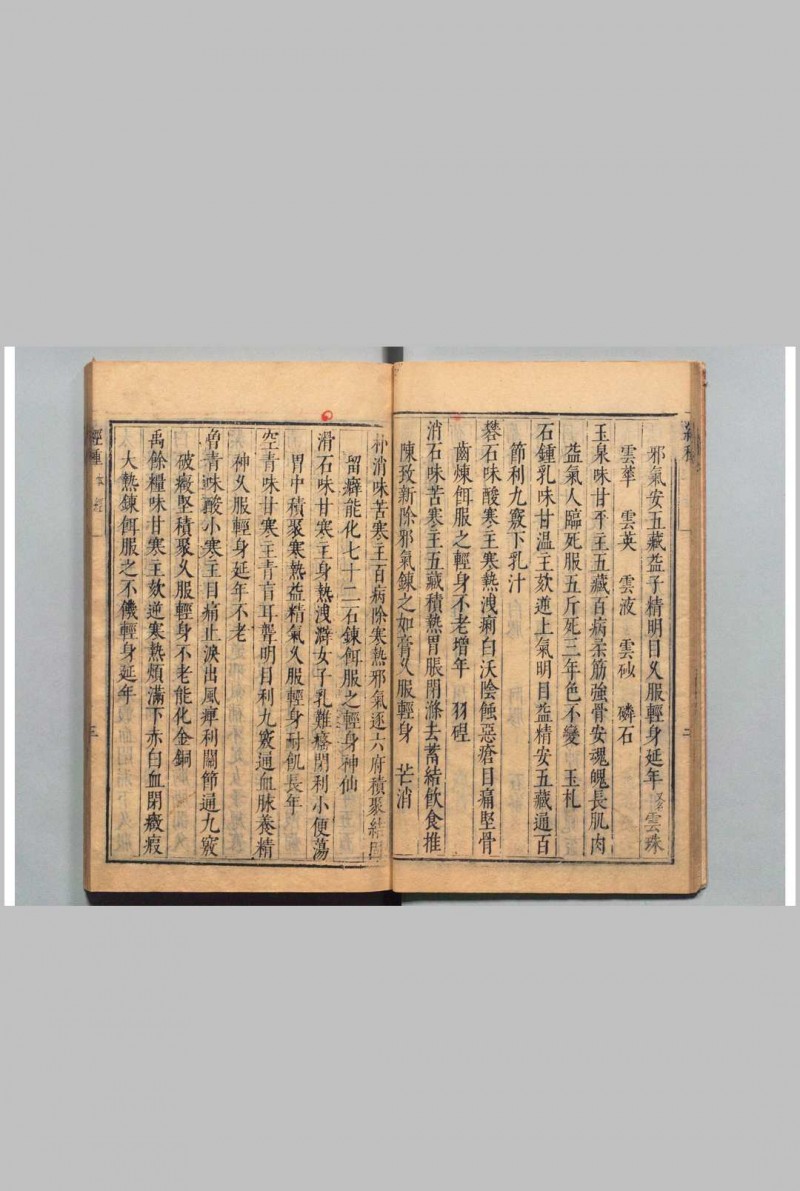 邪氣安五藏益子精明目久服輕身延年 又名 雲珠
雲華 雲英 雲液 雲砂 磷石
玉泉味甘平主五藏百病柔筋強骨安魂魄長肌肉
益氣人臨死服五斤死三年色不變 玉札
石鍾乳味甘温主欬逆上氣明目益精安五藏通百
節利九竅下乳汁
礬石味酸寒主寒熱洩痢白沃陰蝕惡瘡目痛堅骨
齒煉餌服之輕身不老增年 羽碮
消石味苦寒主五藏積熱胃脹閉滌去蓄結飲食推
陳致新除邪氣鍊之如膏久服輕身 芒消
朴消味苦寒主百病除寒熱邪氣逐六府積聚結固
留癖能化七十二石鍊餌服之輕身神仙
滑石味甘寒主身熱洩澼女子乳難癃閉利小便蕩
胃中積聚寒熱益精氣久服輕身耐飢長年
空青味甘寒主青盲耳聾明目利九竅通血脉養精
神久服輕身延年不老
曾青味酸小寒主目痛止淚出風痺利關節通九竅
破癥堅積聚久服輕身不老能化金銅
禹餘糧味甘寒主欬逆寒熱煩滿下赤白血閉癥瘕
大熱鍊餌服之不饑輕身延年